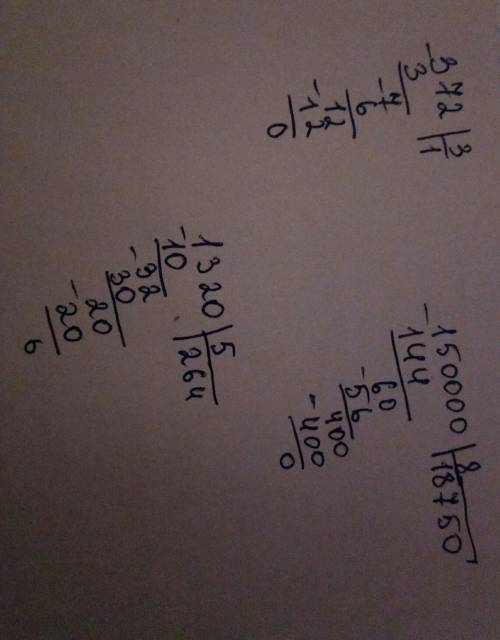 -372 | 3
3 | 1
-7
6
12
-12
0
1320 | 5
-10 | 264
-32
30
20
-20
0
-150000 | 8
144 | 18750
60
-56
400
-400
0